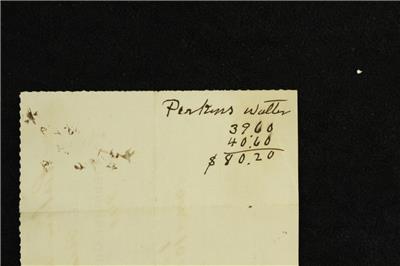 Perkins Walter
39.60
40.60
$80.20